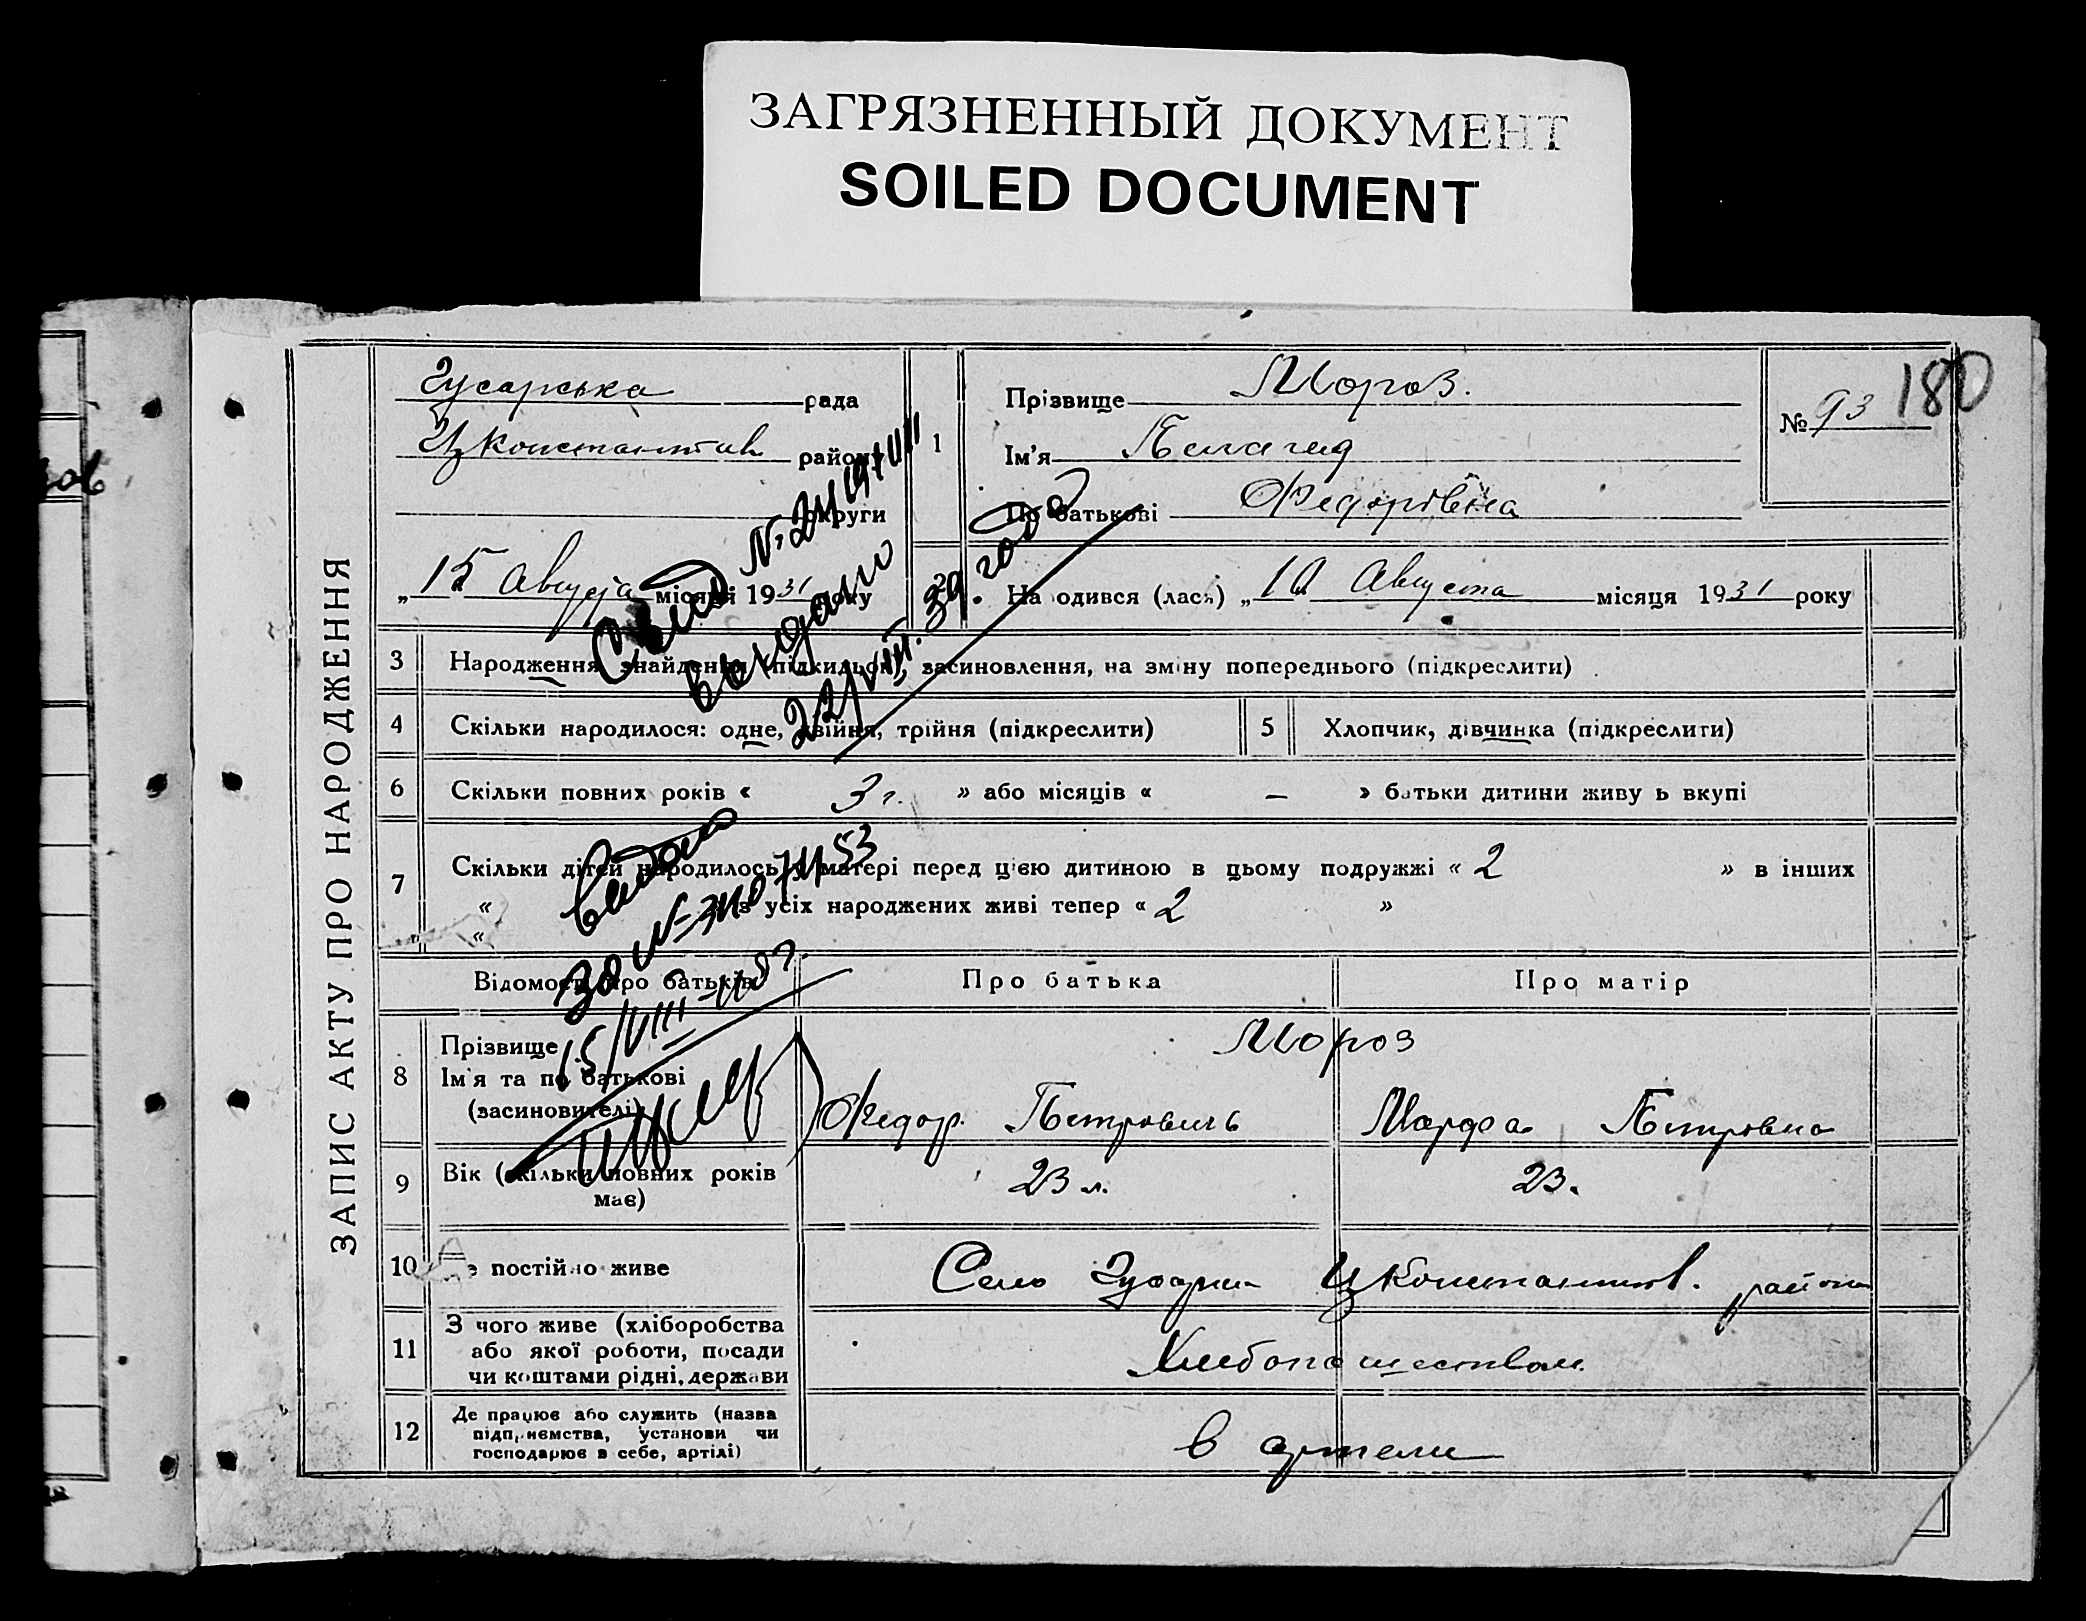 ЗАГРЯЗНЕННЫЙ ДОКУМЕНТ
SOILED DOCUMENT
ЗАПИС АКТУ ПРО НАРОДЖЕННЯ
Гусарська рада
району
округи
„15 Августа місяця 1931 року
1
Прізвище Мороз.
Ім'я Пелагия
По батькові Федорівна
№ 93
180
Народився (лася) „10 Августа місяця 1931 року
3 Народження, знайдення (підкидьок), засиновлення, на зміну попереднього (підкреслити)
4 Скільки народилося: одне, двійня, трійня (підкреслити)
5 Хлопчик, дівчинка (підкреслити)
6 Скільки повних років « 3 г. » або місяців « — » батьки дитини живуть вкупі
7 Скільки дітей народилось у матері перед цією дитиною в цьому подружжі « 2 » в інших
« з усіх народжених живі тепер « 2 »
«
выдано
22/VIII. 39. года
15/VIII
Відомості про батьків
Про батька
Про матір
8 Прізвище
Ім'я та по батькові
(засиновителі)
Мороз
Федор. Петрович
Марфа Петровна
9 Вік (скільки повних років
має)
23 л.
23.
10 Де постійно живе
Село Гусарки Цконстантинов. района
11 З чого живе (хліборобства
або якої роботи, посади
чи коштами рідні, держави
Хлебопашеством
12 Де працює або служить (назва
підприємства, установи чи
господарює в себе, артілі)
в артели